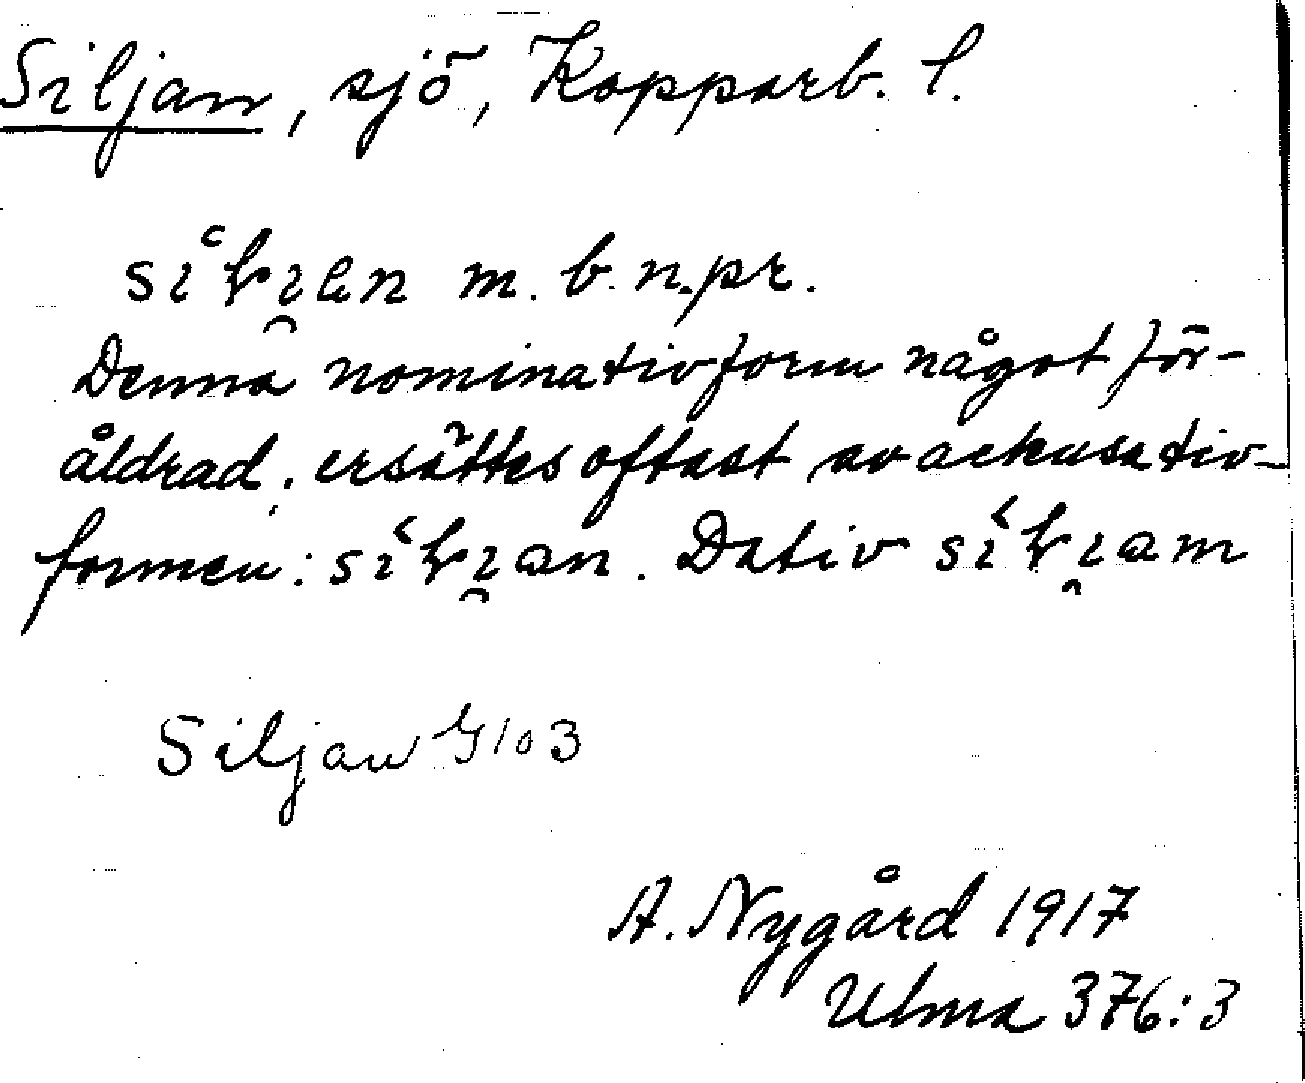 Siljan, sjö, Kopparb. l.
m. b. n.pr.
Denna nominativform något för-
åldrad; ersättes oftast av ackusativ-
formen: . Dativ
Siljan G 103
A. Nygård 1917
Ulma 376:3